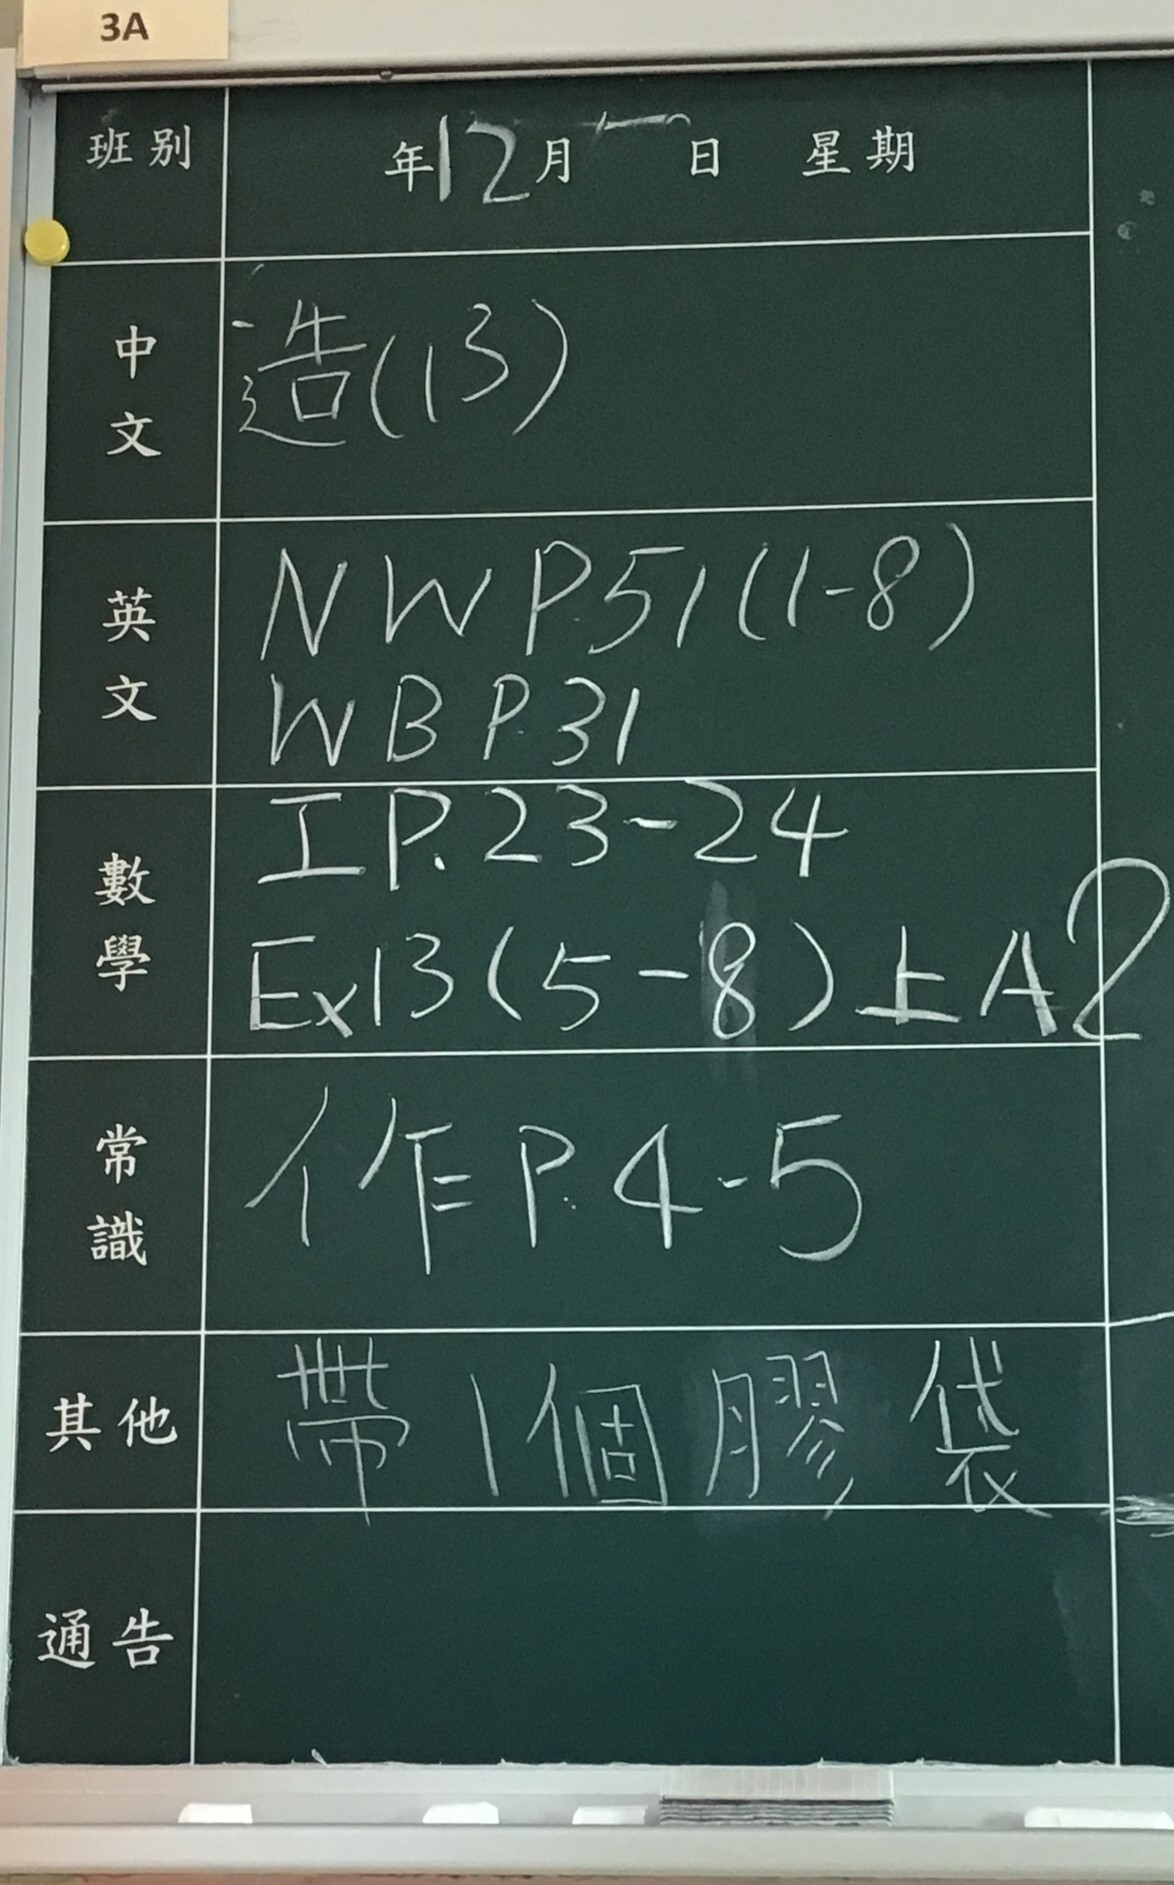 3A
班別 年12月 日 星期
中文 造(13)
英文 NW P.51(1-8)
WB P.31
數學 工 P.23-24
Ex13(5-8)上A2
常識 作 P.4-5
其他 帶1個膠袋
通告